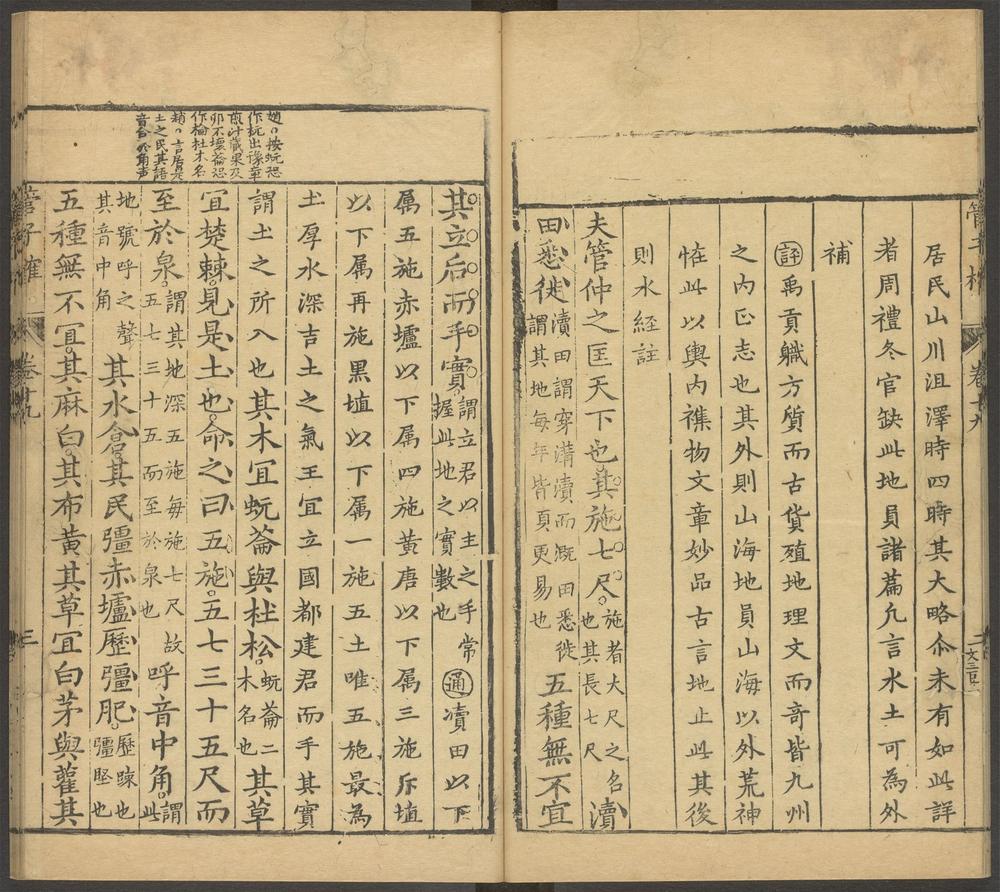 居民山川沮澤時四時其大略尒未有如此詳
者周禮冬官缺此地員諸篇凡言水土可為外
補
評禹貢職方質而古貨殖地理文而奇皆九州
之内正志也其外則山海地員山海以外荒神
恠此以輿内襍物文章妙品古言地止此其後
則水經註
夫管仲之匡天下也其施七尺施者大尺之名也其長七尺瀆
田悉徙瀆田謂穿溝瀆而溉田悉徙謂其地每年皆更易也五種無不宜
其立后而手實謂立君以主之手常握此地之實數也通瀆田以下
属五施赤壚以下属四施黄唐以下属三施斥埴
以下属再施黑埴以下属一施五土唯五施最為
土厚水深吉土之氣王宜立國都建君而手其實
謂土之所入也其木宜蚖菕與杜松蚖菕二木名也其草
宜楚棘見是土也命之曰五施五七三十五尺而
至於泉謂其地深五施每施七尺故五七三十五而至於泉也呼音中角謂此
地號呼之聲其音中角其水倉其民彊赤壚歷彊肥歷踈也彊堅也
五種無不宜其麻白其布黄其草宜白茅與雚其
趙曰按蚖恐
作杬出豫章
煎汁藏果及
卵不壞菕恐
作棆杜木名
趙曰言居是
土之民其語
管子榷
卷十九
三